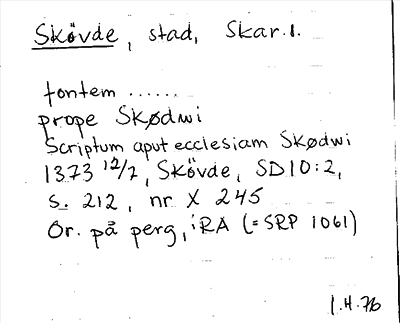 Skövde, stad, Skar.l.
fontem ......
prope Skødwi
Scriptum aput ecclesiam Skødwi
1373 12/7, Skövde, SD10:2,
s. 212, nr X 245
Or. på perg, i RA (= SRP 1061)
I.H. 76